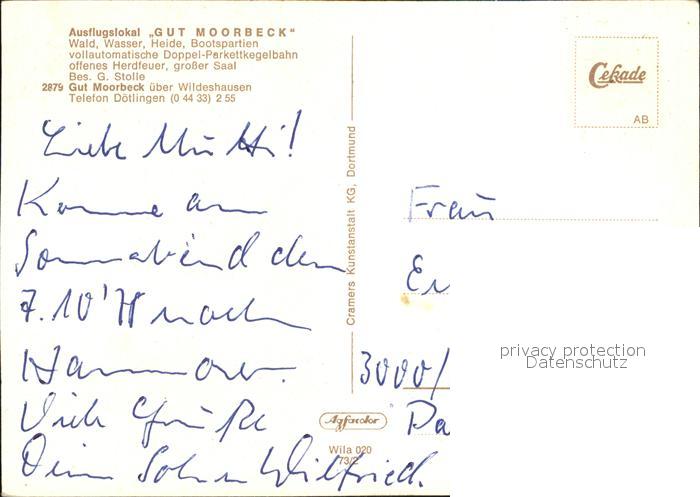 Ausflugslokal „GUT MOORBECK"
Wald, Wasser, Heide, Bootspartien
vollautomatische Doppel-Parkettkegelbahn
offenes Herdfeuer, großer Saal
Bes. G. Stolle
2879 Gut Moorbeck über Wildeshausen
Telefon Dötlingen (0 44 33) 2 55
Liebe Mutti!
Komme am
Sonnabend den
7. 10. nach
Hannover.
Viele Grüße
Dein Sohn Wilfried.
Cramers Kunstanstalt KG, Dortmund
Agfacolor
Wila 020
73/2
Cekade
AB
Frau
3000/
privacy protection
Datenschutz